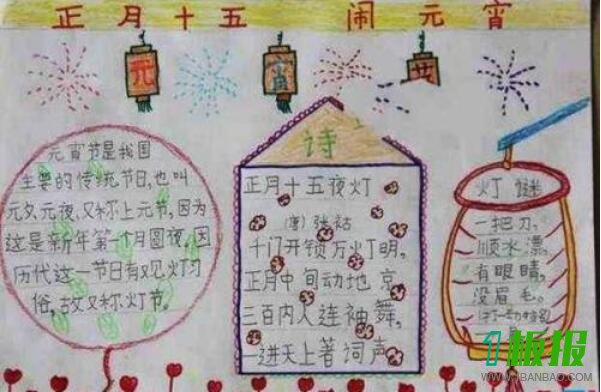 正月十五 闹元宵
元 宵 节
元宵节是我国
主要的传统节日,也叫
元夕、元夜、又称上元节,因为
这是新年第一个月圆夜,因
历代这一节日有观灯习
俗,故又称灯节。
诗
正月十五夜灯
(唐)张祜
千门开锁万灯明,
正月中旬动地京
三百内人连袖舞,
一进天上著词声
灯谜
一把刀,
顺水漂,
有眼睛,
没眉毛。
(打一动物名)
板报
WWW.1BANBAO.COM